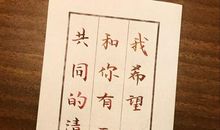 我希望
和你有
共同的清